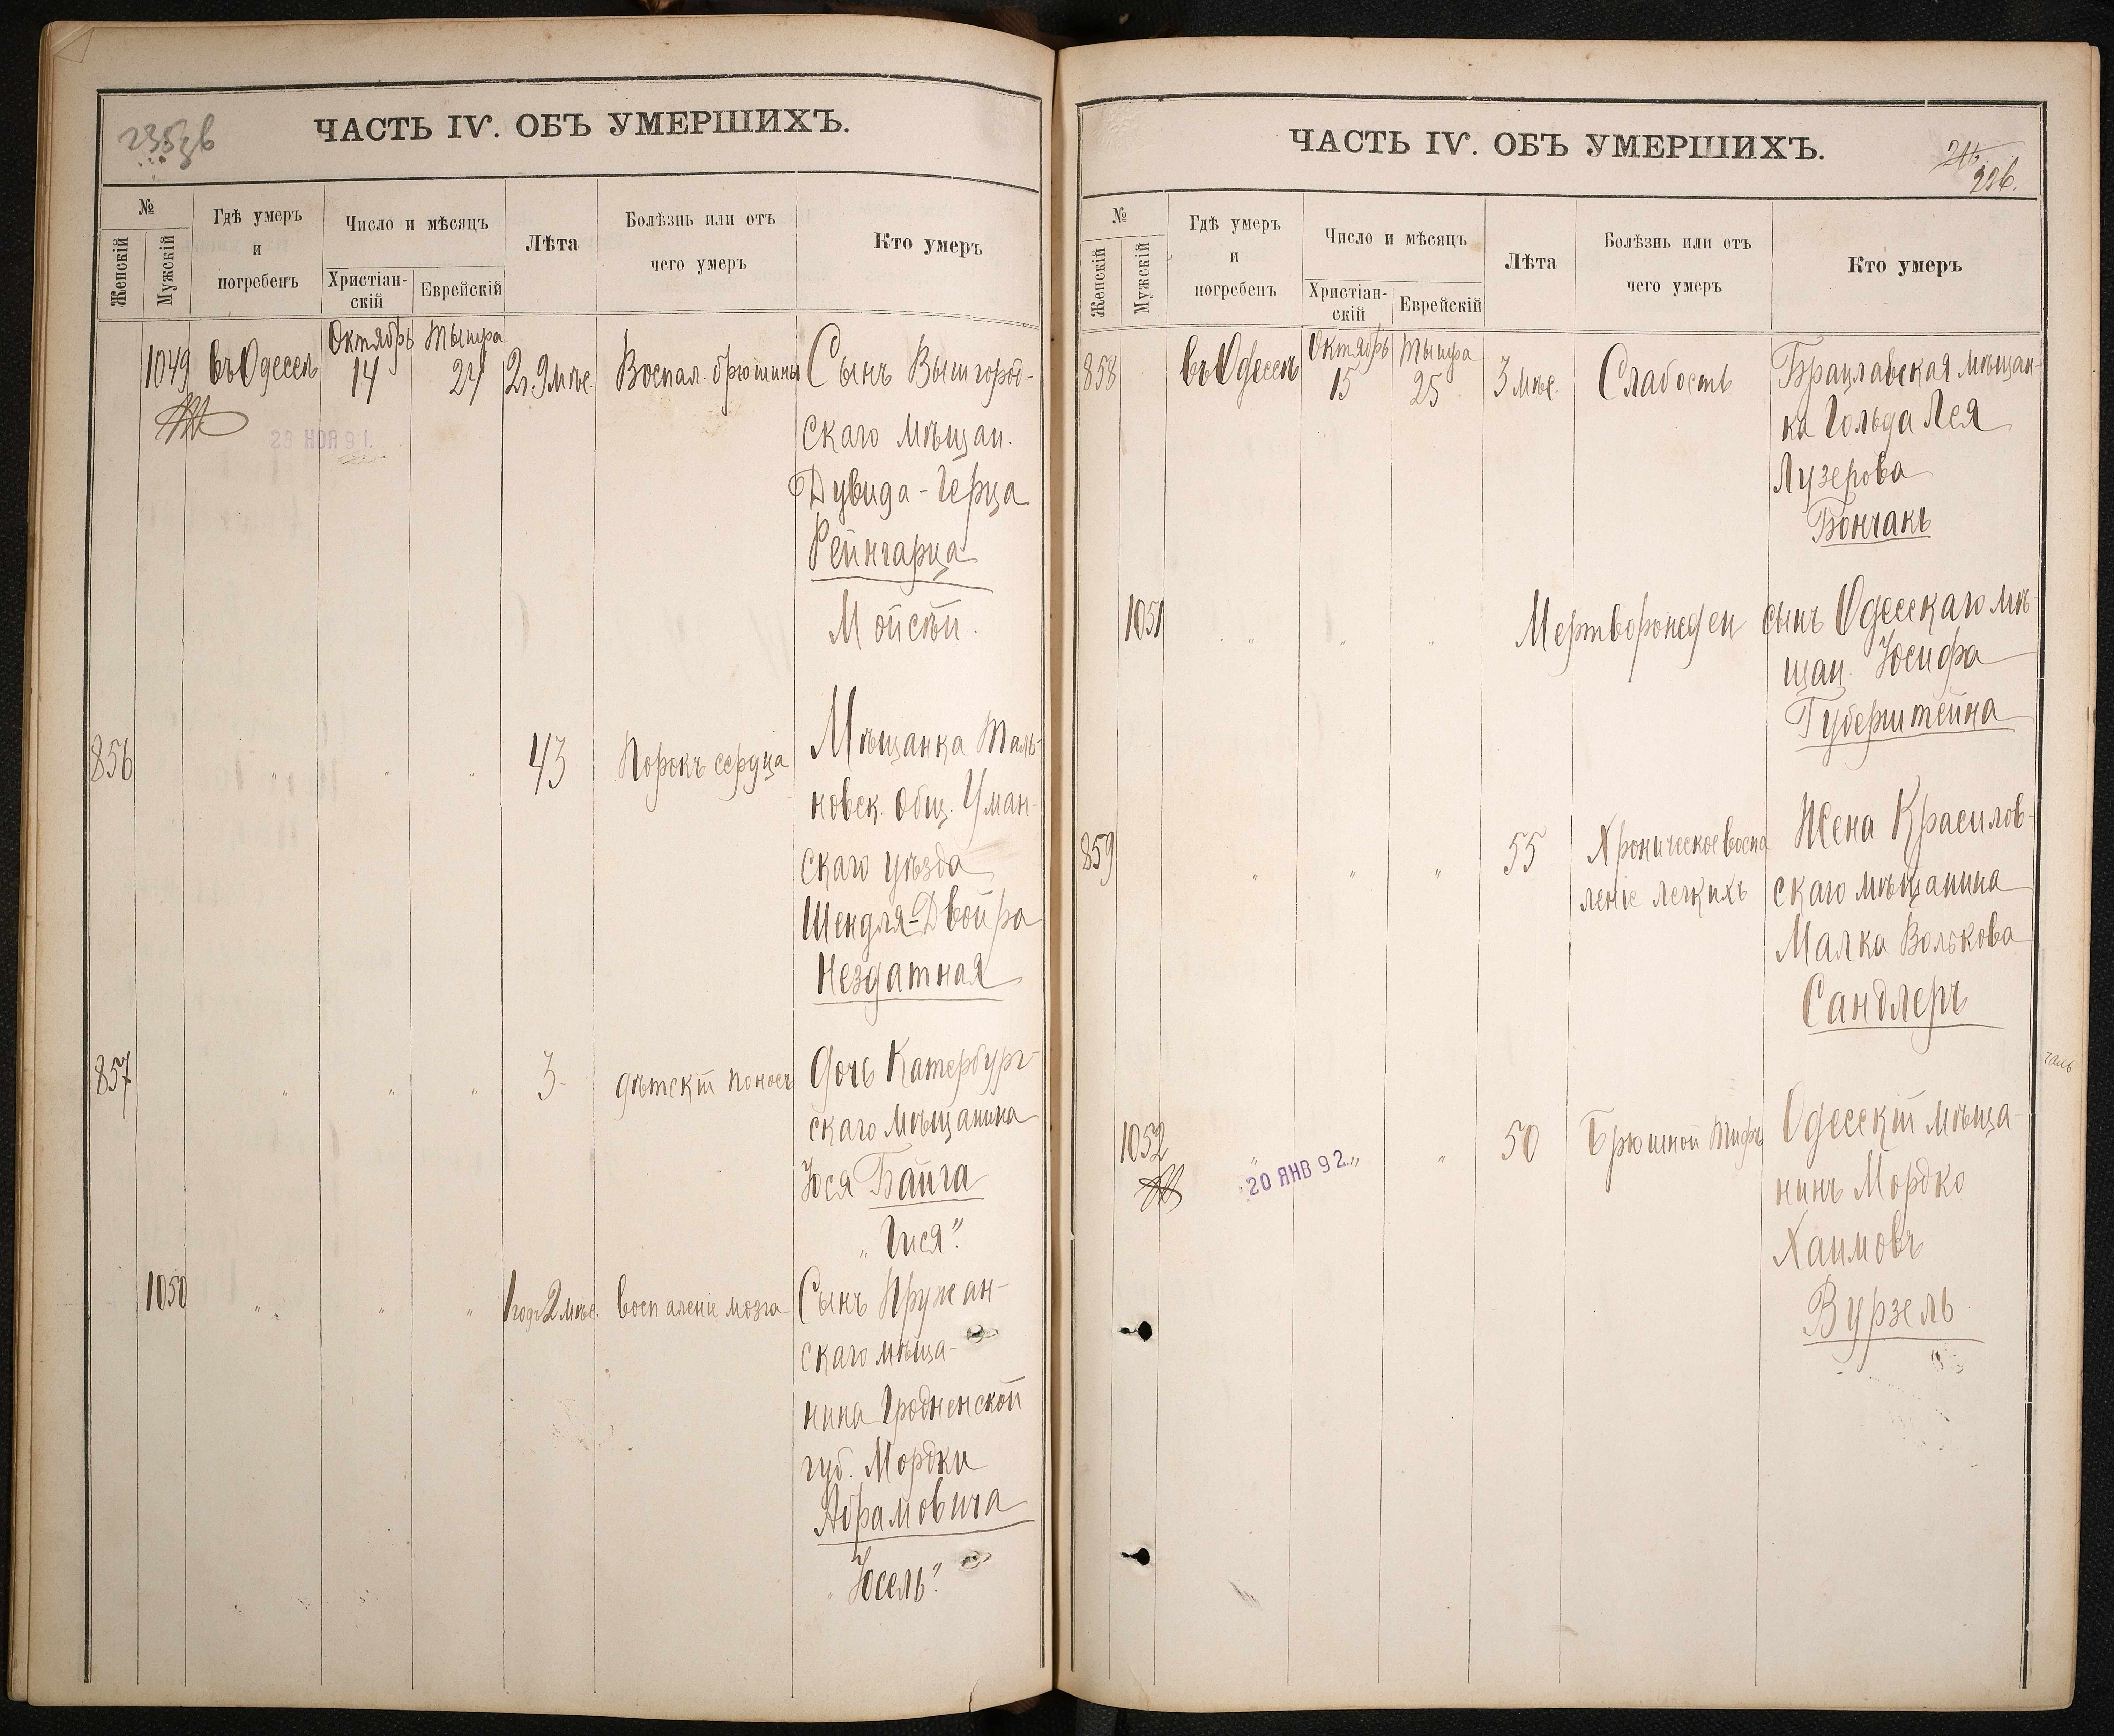 235зв
ЧАСТЬ IV. ОБЪ УМЕРШИХЪ.
№
Женскій
Мужскій
Гдѣ умеръ
и
погребенъ
Число и мѣсяцъ
Христіан-
скій
Еврейскій
Лѣта
Болѣзнь или отъ
чего умеръ
Кто умеръ
Октябрь Тышра
1049 въ Одессѣ 14 24 2г. 9 мѣс. Воспал. брюшины Сынъ Вышгород-
28 НОЯ 91.
скаго мѣщан.
Дувида-Герца
Рейнгарца
Мойсѣй.
856 " " " 43 Порокъ сердца Мѣщанка Таль-
новск. общ. Уман-
скаго уѣзда
Шендля-Двойра
Нездатная
857 " " " 3 дѣтскій поносъ Дочь Катербург-
скаго мѣщанина
Іося Байга
"Гися".
1050 " " " 1 годъ 2 мѣс. воспаленіе мозга Сынъ Пружан-
скаго мѣща-
нина Гродненской
губ. Мордки
Абрамовича
"Іосель".
ЧАСТЬ IV. ОБЪ УМЕРШИХЪ.
236.
№
Женскій
Мужскій
Гдѣ умеръ
и
погребенъ
Число и мѣсяцъ
Христіан-
скій
Еврейскій
Лѣта
Болѣзнь или отъ
чего умеръ
Кто умеръ
Октябрь Тышра
858 въ Одессѣ 15 25 3 мѣс. Слабость Брацлавская мѣщан-
ка Гольда Лея
Лузерова
Бончакъ
1051 " " " Мертворожден сынъ Одесскаго мѣ-
щан. Іосифа
Губерштейна
859 " " " 55 Хроническое воспа Жена Красилов-
леніе легкихъ скаго мѣщанина
Малка Волькова
Сандлеръ
1052 " " " 50 Брюшной тифъ Одесскій мѣща-
20 ЯНВ 92
нинъ Мордко
Хаимовъ
Вурзель